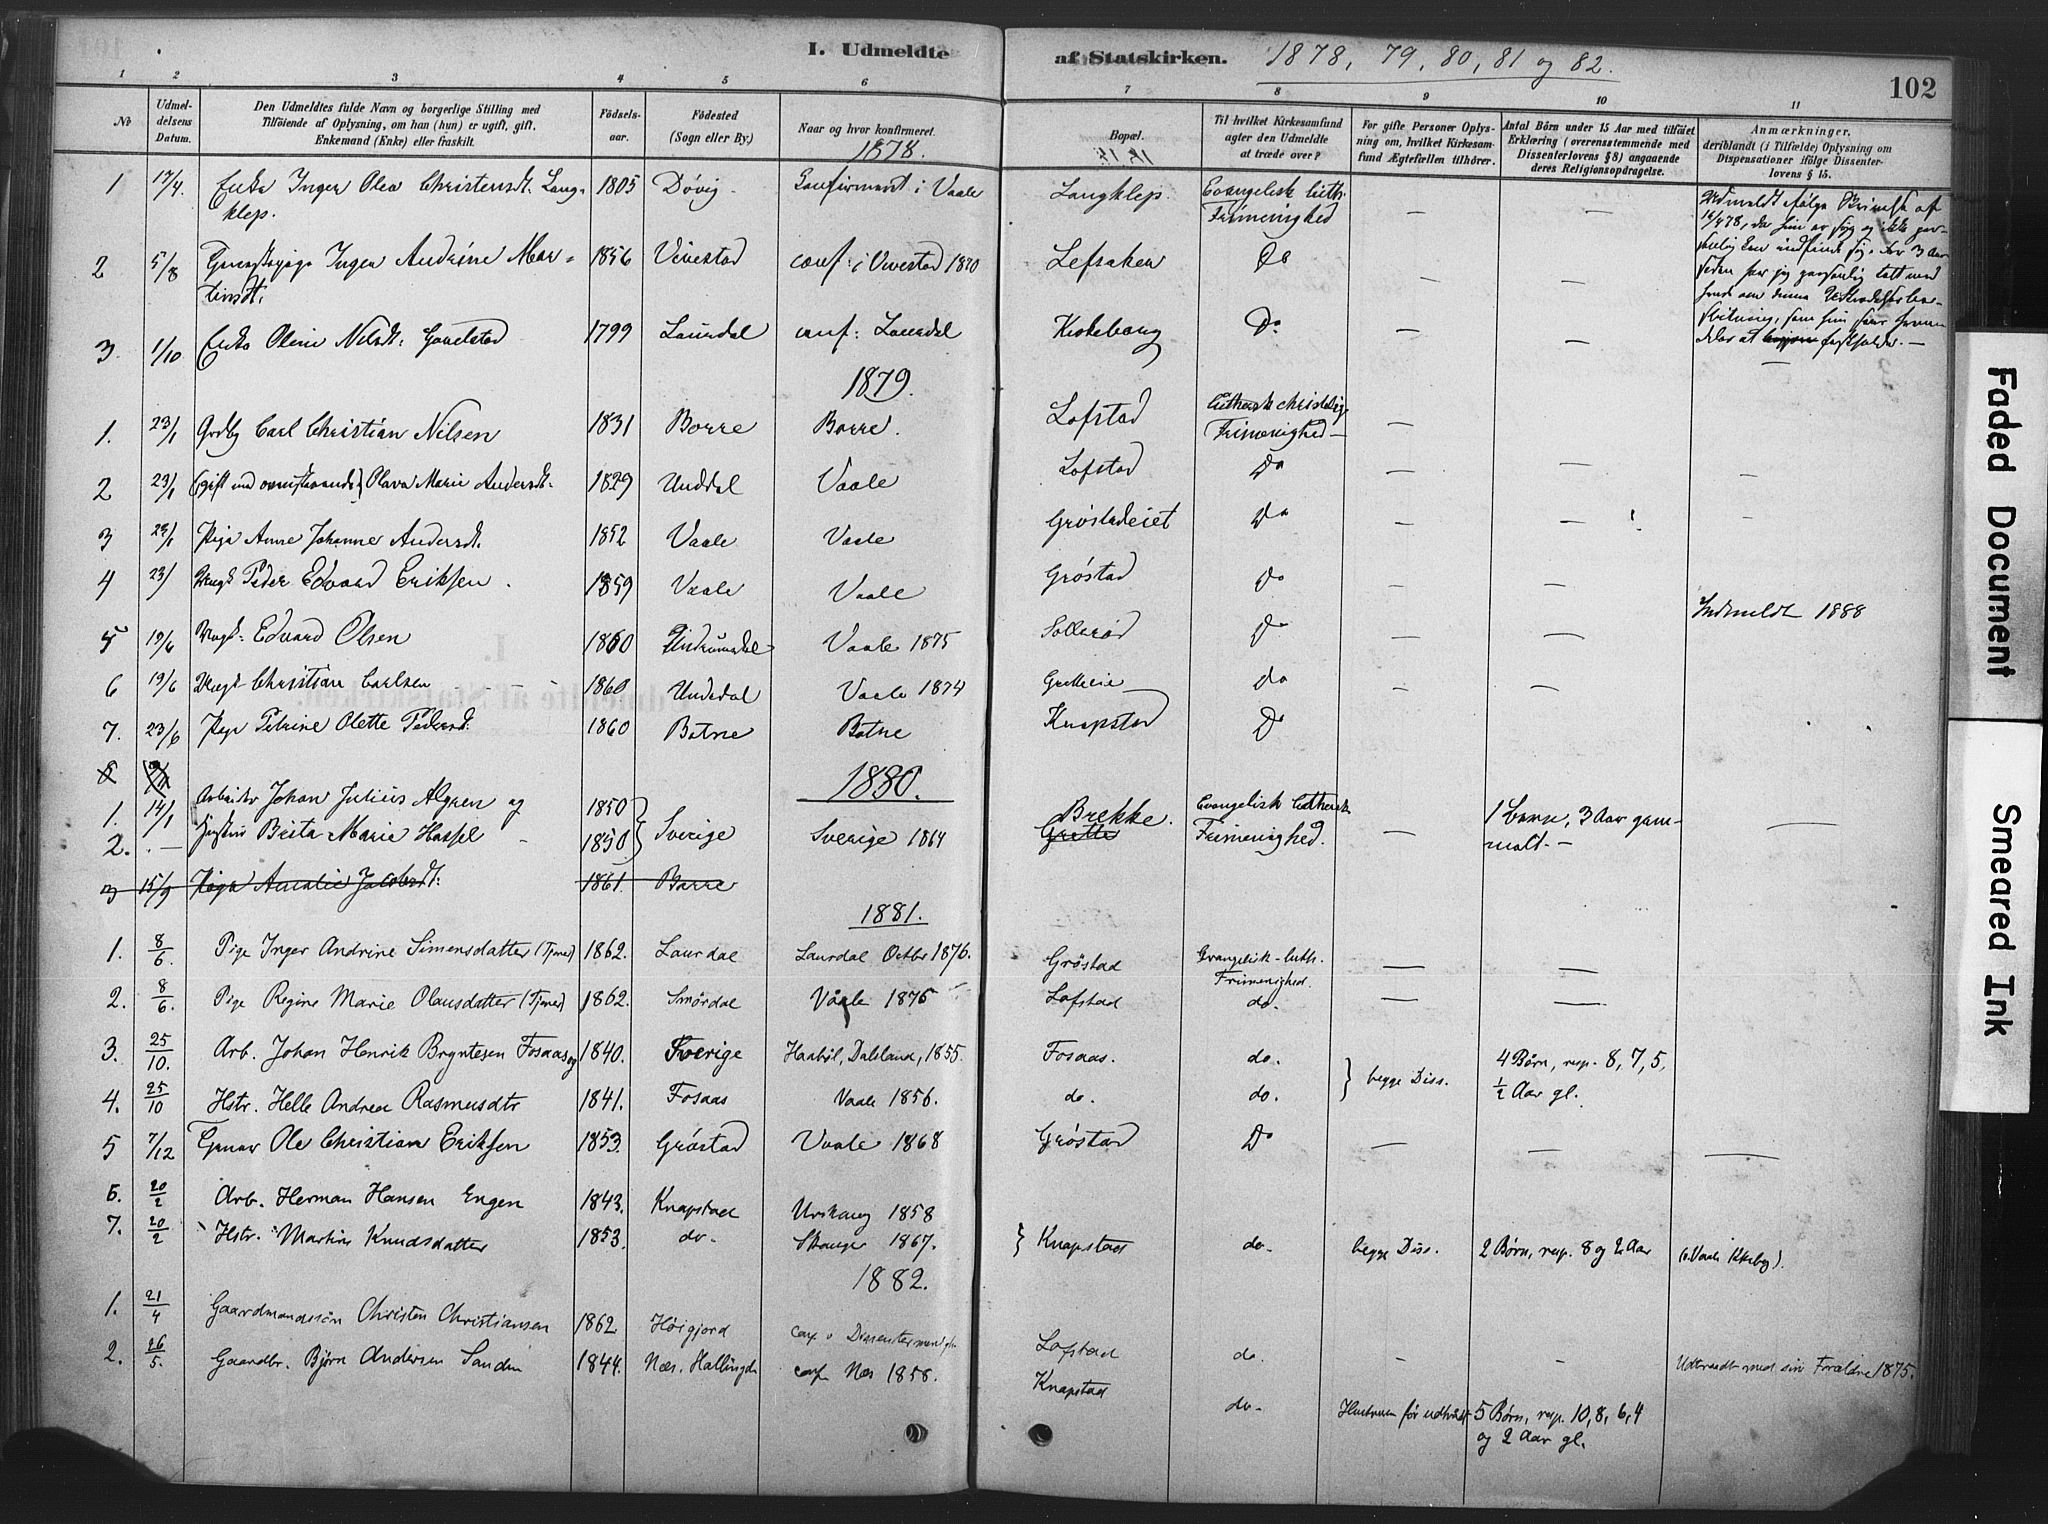 I. Udmeldte af Statskirken. 1878, 79, 80, 81 og 82.
102
1 2 3 4 5 6 7 8 9 10 11
No
Udmeldelsens Datum.
Den Udmeldtes fulde Navn og borgerlige Stilling med
Tilføiende af Oplysning, om han (hun) er ugift, gift,
Enkemand (Enke) eller fraskilt.
Fødselsaar.
Fødested
(Sogn eller By.)
Naar og hvor konfirmeret.
Bopæl.
Til hvilket Kirkesamfund
agter den Udmeldte
at træde over?
For gifte Personer Oplysning om, hvilket Kirkesamfund Ægtefællen tilhører.
Antal Børn under 15 Aar med tilføiet
Erklæring (overensstemmende med
Dissenterlovens § 8) angaaende
deres Religionsopdragelse.
Anmærkninger,
deriblandt (i Tilfælde) Oplysning om
Dispensationer ifølge Dissenterlovens § 15.
1878.
1 17/4. Enke Inger Olea Christensdt. Langklep. 1805 Døvig Confirmeret i Vaale Langklep Evangelisk luth. Frimenighed — —
2 5/8 Inger Andrine Martinsdt. 1856 Vivestad conf: i Vivestad 1870 Lefsaker Do — —
3. 1/10 Enke Olene Nilsdt. Gavelstad 1799 Laurdal conf: Laurdal Kirkeberg Do — — —
1879.
1. 23/1 Carl Christian Nilsen 1831 Borre Borre. Lofstad Luthersk christelig Frimenighed — —
2 23/1 (gift med ovenstaaende) Olava Marie Andersdt. 1829 Unddal Vaale Lofstad Do — — —
3 23/1 Pige Anne Johanne Andersdt. 1852 Vaale Vaale Grøstadeiet Do — — —
4 23/1 Ungk. Peder Edvard Eriksen. 1859 Vaale Vaale Grøstad Do — —
5 19/6 Ungk: Edvard Olsen 1860 Vaale 1875 Sollerød Do — — Indmeldt 1888
6 19/6 Ungk. Christian Carlsen 1860 Undedal Vaale 1874 Gretteeie do — —
7. 23/6 Pige Petrine Olette Pedersdt. 1860 Botne Botne Knapstad Do
1880.
1. 14/1 Arbeider Johan Julius Algren og 1850 } Sverige Brekke. Evangelisk luthersk 1 barn, 3 Aar gam-
2. - — Hustru Brita Marie Hassel 1850 } Sverige 1864 Grette Frimenighed. — malt. — —
3 15/9 Pige Amalie Jacobsdt: 1861. Borre
1881.
1. 8/6. Pige Inger Andrine Simensdatter (Tjener) 1862. Laurdal Laurdal Octbr 1876. Grøstad Evangelisk-luth. Frimenighed. — —
2. 8/6. Pige Regine Marie Olausdatter (Tjener) 1862. Smørdal Vaale 1876 Lofstad do. — —
3. 25/10. Arb. Johan Henrik Bryntesen Fosaas og 1840. Sverige Haabøl, Dalsland, 1855. Fosaas. do. } begge Diss. 4 Børn, resp. 8, 7, 5,
4. 25/10 Hstr. Helle Andrea Rasmusdtr 1841. Fosaas Vaale 1856. do. do. 1/2 Aar gl.
5 7/12 Ole Christian Eriksen 1853. Grøstad Vaale 1868 Grøstad Do — — —
6. 20/2 Arb. Herman Hansen Engen 1843. Knapstad Urskoug 1858
7. 20/2 Hstr. Martine Knudsdatter 1853. do. Skouger 1867. } Knapstad do. begge Diss. 2 Børn, resp. 8 og 2 Aar
1882.
1. 21/4 Gaardmandssøn Christen Christiansen 1862. Høigjord conf. Lofstad do. — — Udtraadt med sin Forældre 1875.
2. 26/5. Gaardbr. Bjørn Andersen Sanden 1844. Næs, Hallingd. conf. Næs 1858. Knapstad do. Hustruen før udtraadt 5 Børn, resp. 10, 8, 6, 4
og 2 Aar gl.
Faded Document
Smeared Ink